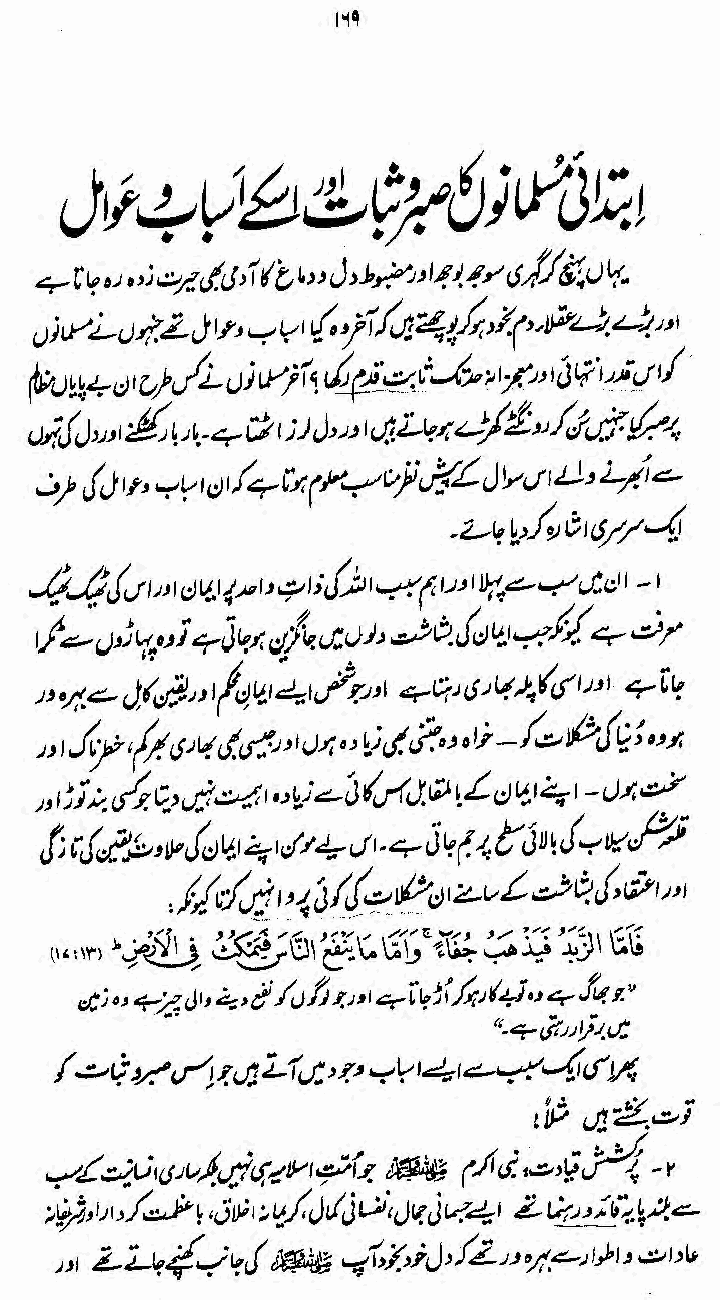 ۱۶۹
اِبتدائی مُسلمانوں کا صبر و ثبات اور اسکے اَسباب و عَوامل
یہاں پہنچ کر گہری سوجھ بوجھ اور مضبوط دل و دماغ کا آدمی بھی حیرت زدہ رہ جاتا ہے
اور بڑے بڑے عقلاء دم بخود ہو کر پوچھتے ہیں کہ آخر وہ کیا اسباب و عوامل تھے جنہوں نے مسلمانوں
کو اس قدر انتہائی اور معجزانہ حد تک ثابت قدم رکھا؟ آخر مسلمانوں نے کس طرح ان بے پایاں مظالم
پر صبر کیا جنہیں سُن کر رونگٹے کھڑے ہو جاتے ہیں اور دل لرز اٹھتا ہے۔ بار بار کھٹکنے اور دل کی تہوں
سے اُبھرنے والے اس سوال کے پیش نظر مناسب معلوم ہوتا ہے کہ ان اسباب و عوامل کی طرف
ایک سرسری اشارہ کر دیا جائے۔
۱۔ ان میں سب سے پہلا اور اہم سبب اللہ کی ذاتِ واحد پر ایمان اور اس کی ٹھیک ٹھیک
معرفت ہے کیونکہ جب ایمان کی بشاشت دلوں میں جاگزین ہو جاتی ہے تو وہ پہاڑوں سے ٹکرا
جاتا ہے اور اسی کا پلہ بھاری رہتا ہے اور جو شخص ایسے ایمانِ محکم اور یقینِ کامل سے بہرہ ور
ہو وہ دُنیا کی مشکلات کو — خواہ وہ جتنی بھی زیادہ ہوں اور جیسی بھی بھاری بھرکم، خطرناک اور
سخت ہوں — اپنے ایمان کے بالمقابل اس کائی سے زیادہ اہمیت نہیں دیتا جو کسی بند توڑ اور
قلعہ شکن سیلاب کی بالائی سطح پر جم جاتی ہے۔ اس لیے مومن اپنے ایمان کی حلاوت، یقین کی تازگی
اور اعتقاد کی بشاشت کے سامنے ان مشکلات کی کوئی پروا نہیں کرتا کیونکہ:
فَاَمَّا الزَّبَدُ فَیَذْھَبُ جُفَآءً ۚ وَاَمَّا مَا یَنْفَعُ النَّاسَ فَیَمْکُثُ فِی الْاَرْضِ ؕ (۱۷:۱۳)
”جو جھاگ ہے وہ تو بے کار ہو کر اُڑ جاتا ہے اور جو لوگوں کو نفع دینے والی چیز ہے وہ زمین
میں برقرار رہتی ہے۔“
پھر اسی ایک سبب سے ایسے اسباب وجود میں آتے ہیں جو اِس صبر و ثبات کو
قوت بخشتے ہیں مثلاً:
۲۔ پُرکشش قیادت: نبی اکرم ﷺ جو اُمّتِ اسلامیہ ہی نہیں بلکہ ساری انسانیت کے سب
سے بلند پایہ قائد و رہنما تھے ایسے جسمانی جمال، نفسانی کمال، کریمانہ اخلاق، باعظمت کردار اور شریفانہ
عادات و اطوار سے بہرہ ور تھے کہ دل خود بخود آپ ﷺ کی جانب کھنچے جاتے تھے اور